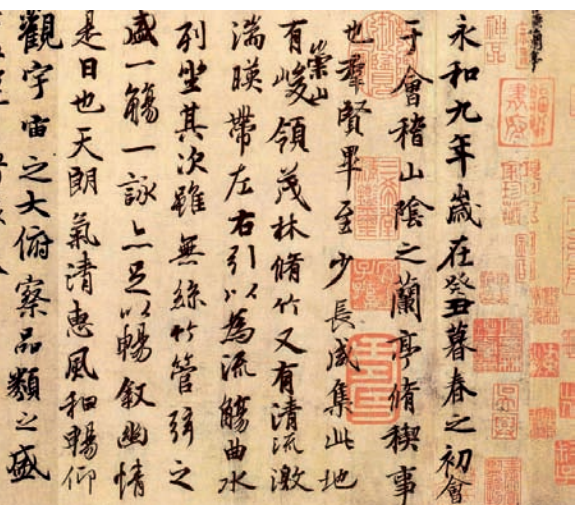 永和九年歲在癸丑暮春之初會
于會稽山陰之蘭亭脩稧事
也羣賢畢至少長咸集此地
有崇山峻領茂林脩竹又有清流激
湍暎帶左右引以為流觴曲水
列坐其次雖無絲竹管弦之
盛一觴一詠亦足以暢敘幽情
是日也天朗氣清惠風和暢仰
觀宇宙之大俯察品類之盛
神品